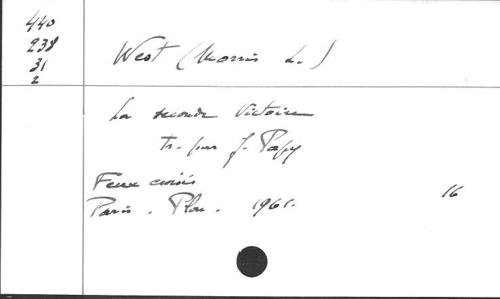 440
238
31
2
West (Morris L.)
La seconde Victoire
tr. par J. Papy
Feux croisés
Paris. Plon. 1961. 16